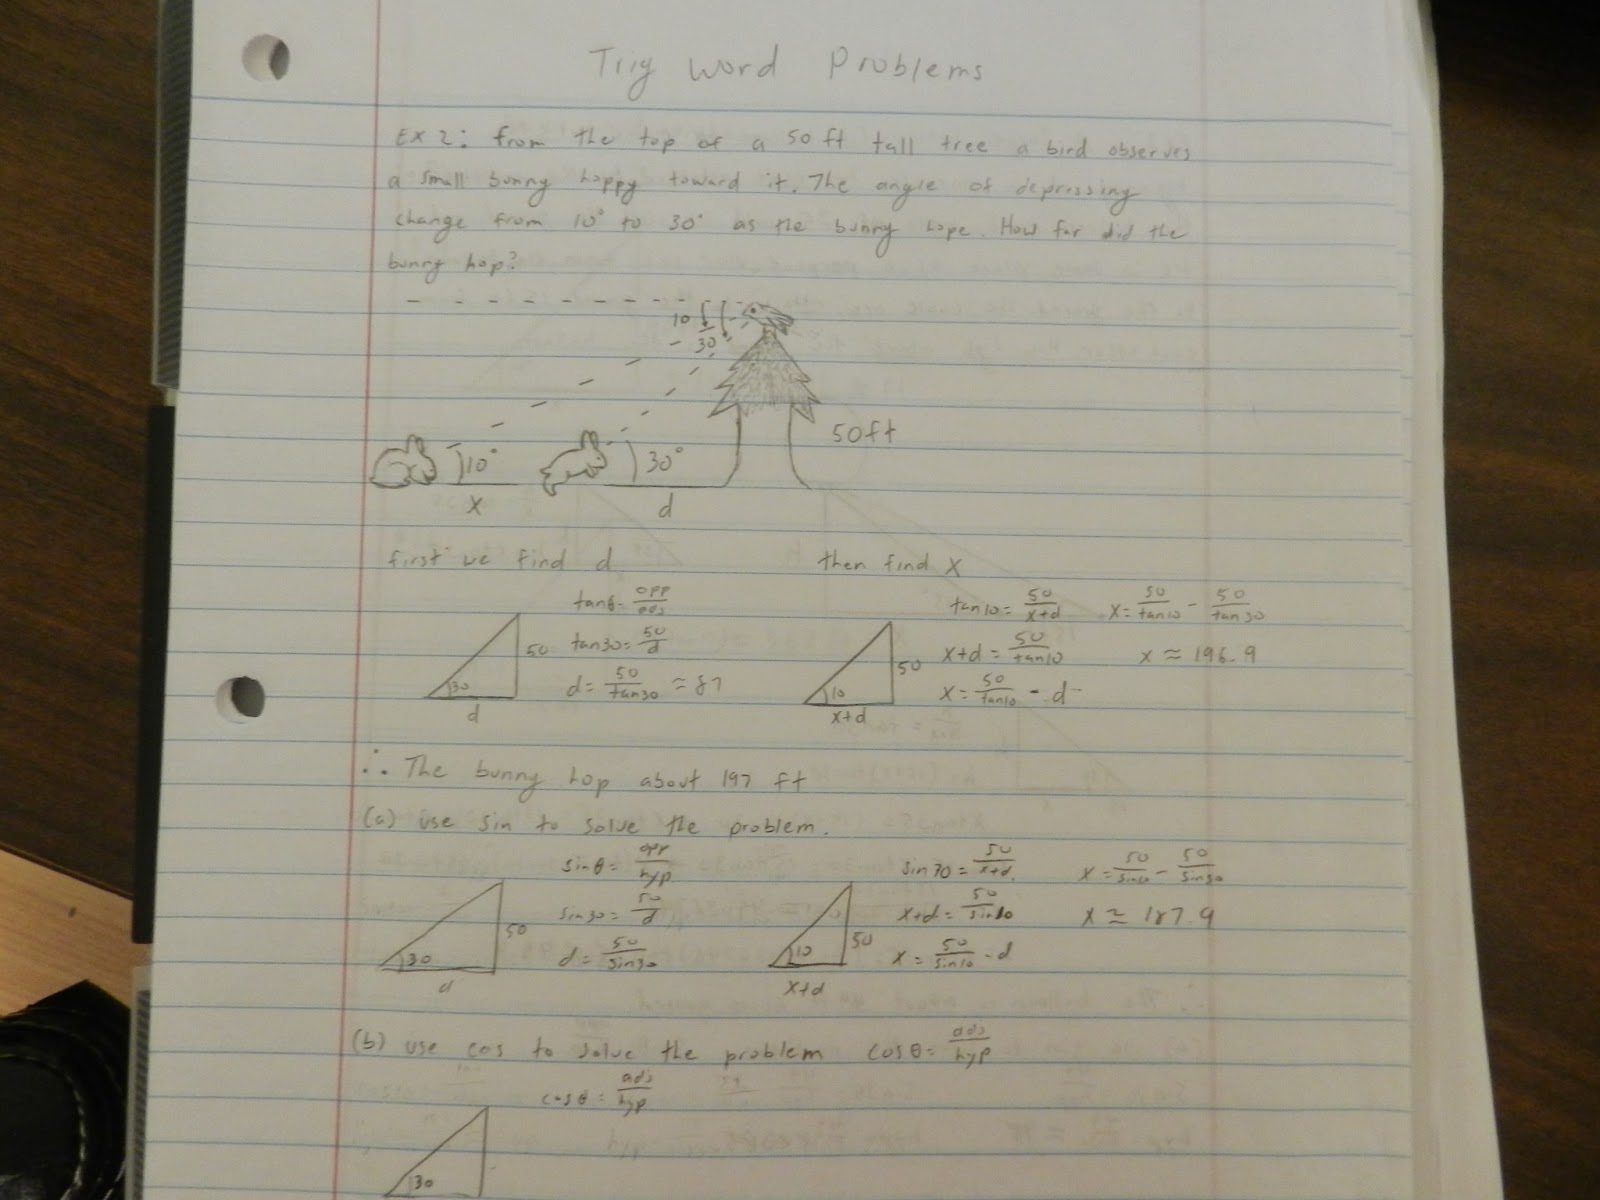 Trig Word Problems
Ex 2: from the top of a 50 ft tall tree a bird observes
a small bunny hoppy toward it. The angle of depressing
change from 10° to 30° as the bunny hope. How far did the
bunny hop?
10
30
50ft
10°
30°
x
d
first we find d
then find x
tanθ = opp/adj
tan30 = 50/d
d = 50/tan30 ≈ 87
50
30
d
tan10 = 50/x+d
x+d = 50/tan10
x = 50/tan10 - d
x = 50/tan10 - 50/tan30
x ≈ 196.9
50
10
x+d
∴ The bunny hop about 197 ft
(a) use sin to solve the problem.
sinθ = opp/hyp
sin30 = 50/d
d = 50/sin30
50
30
d
sin30 = 50/x+d
x+d = 50/sin10
x = 50/sin10 - d
x = 50/sin10 - 50/sin30
x ≈ 187.9
50
10
x+d
(b) use cos to solve the problem cosθ = adj/hyp
cosθ = adj/hyp
30